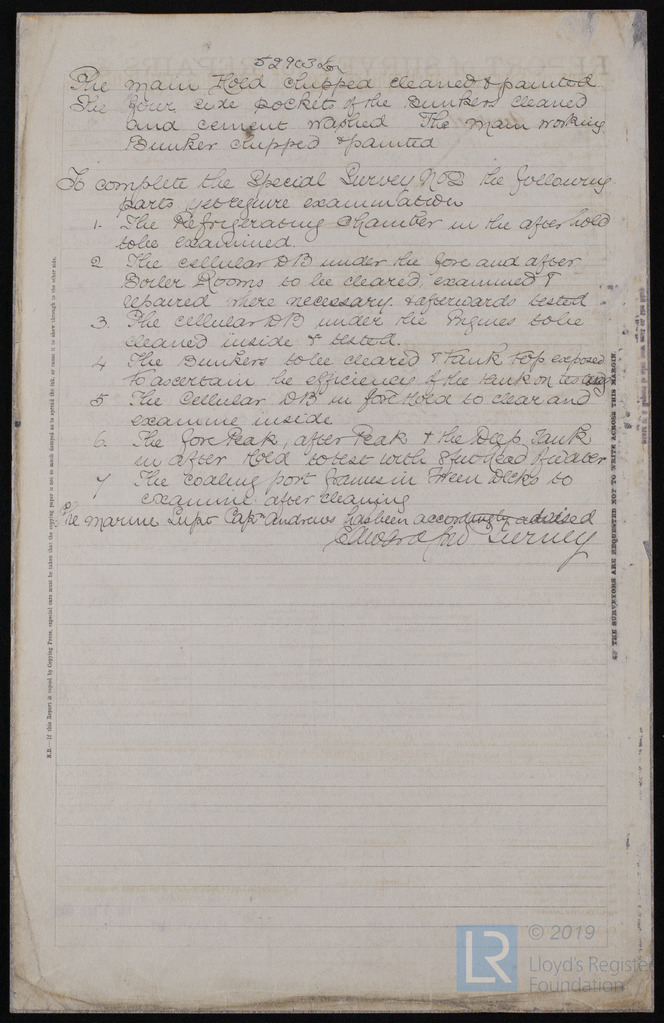 52903 Lon
The main Hold chipped cleaned & painted
The four side pockets of the Bunkers cleaned
and cement washed The main working
Bunker chipped & painted
To complete the Special Survey No2 the following
parts yet require examination
1. The Refrigerating Chamber in the after hold
to be examined.
2 The cellular DB under the fore and after
Boiler Rooms to be cleared, examined &
repaired where necessary & afterwards tested
3. The cellular DB under the Engines to be
cleaned inside & tested.
4 The Bunkers to be cleared & tank top exposed
to ascertain the efficiency of the tank on testing
5 The Cellular DB in fore Hold to clear and
examine inside
6. The fore Peak, after Peak & the Deep Tank
in after Hold to test with 8 feet head of water
7 The coaling port frames in Tween Decks to
examine after cleaning
The marine Supt Capn Andrews has been accordingly advised
N.B.—If this Report is copied by Copying Press, especial care must be taken that the copying paper is not so much damped as to spread the ink, or cause it to show through to the other side.
THE SURVEYORS ARE REQUESTED NOT TO WRITE ACROSS THIS MARGIN
LR
© 2019
Lloyd's Register
Foundation